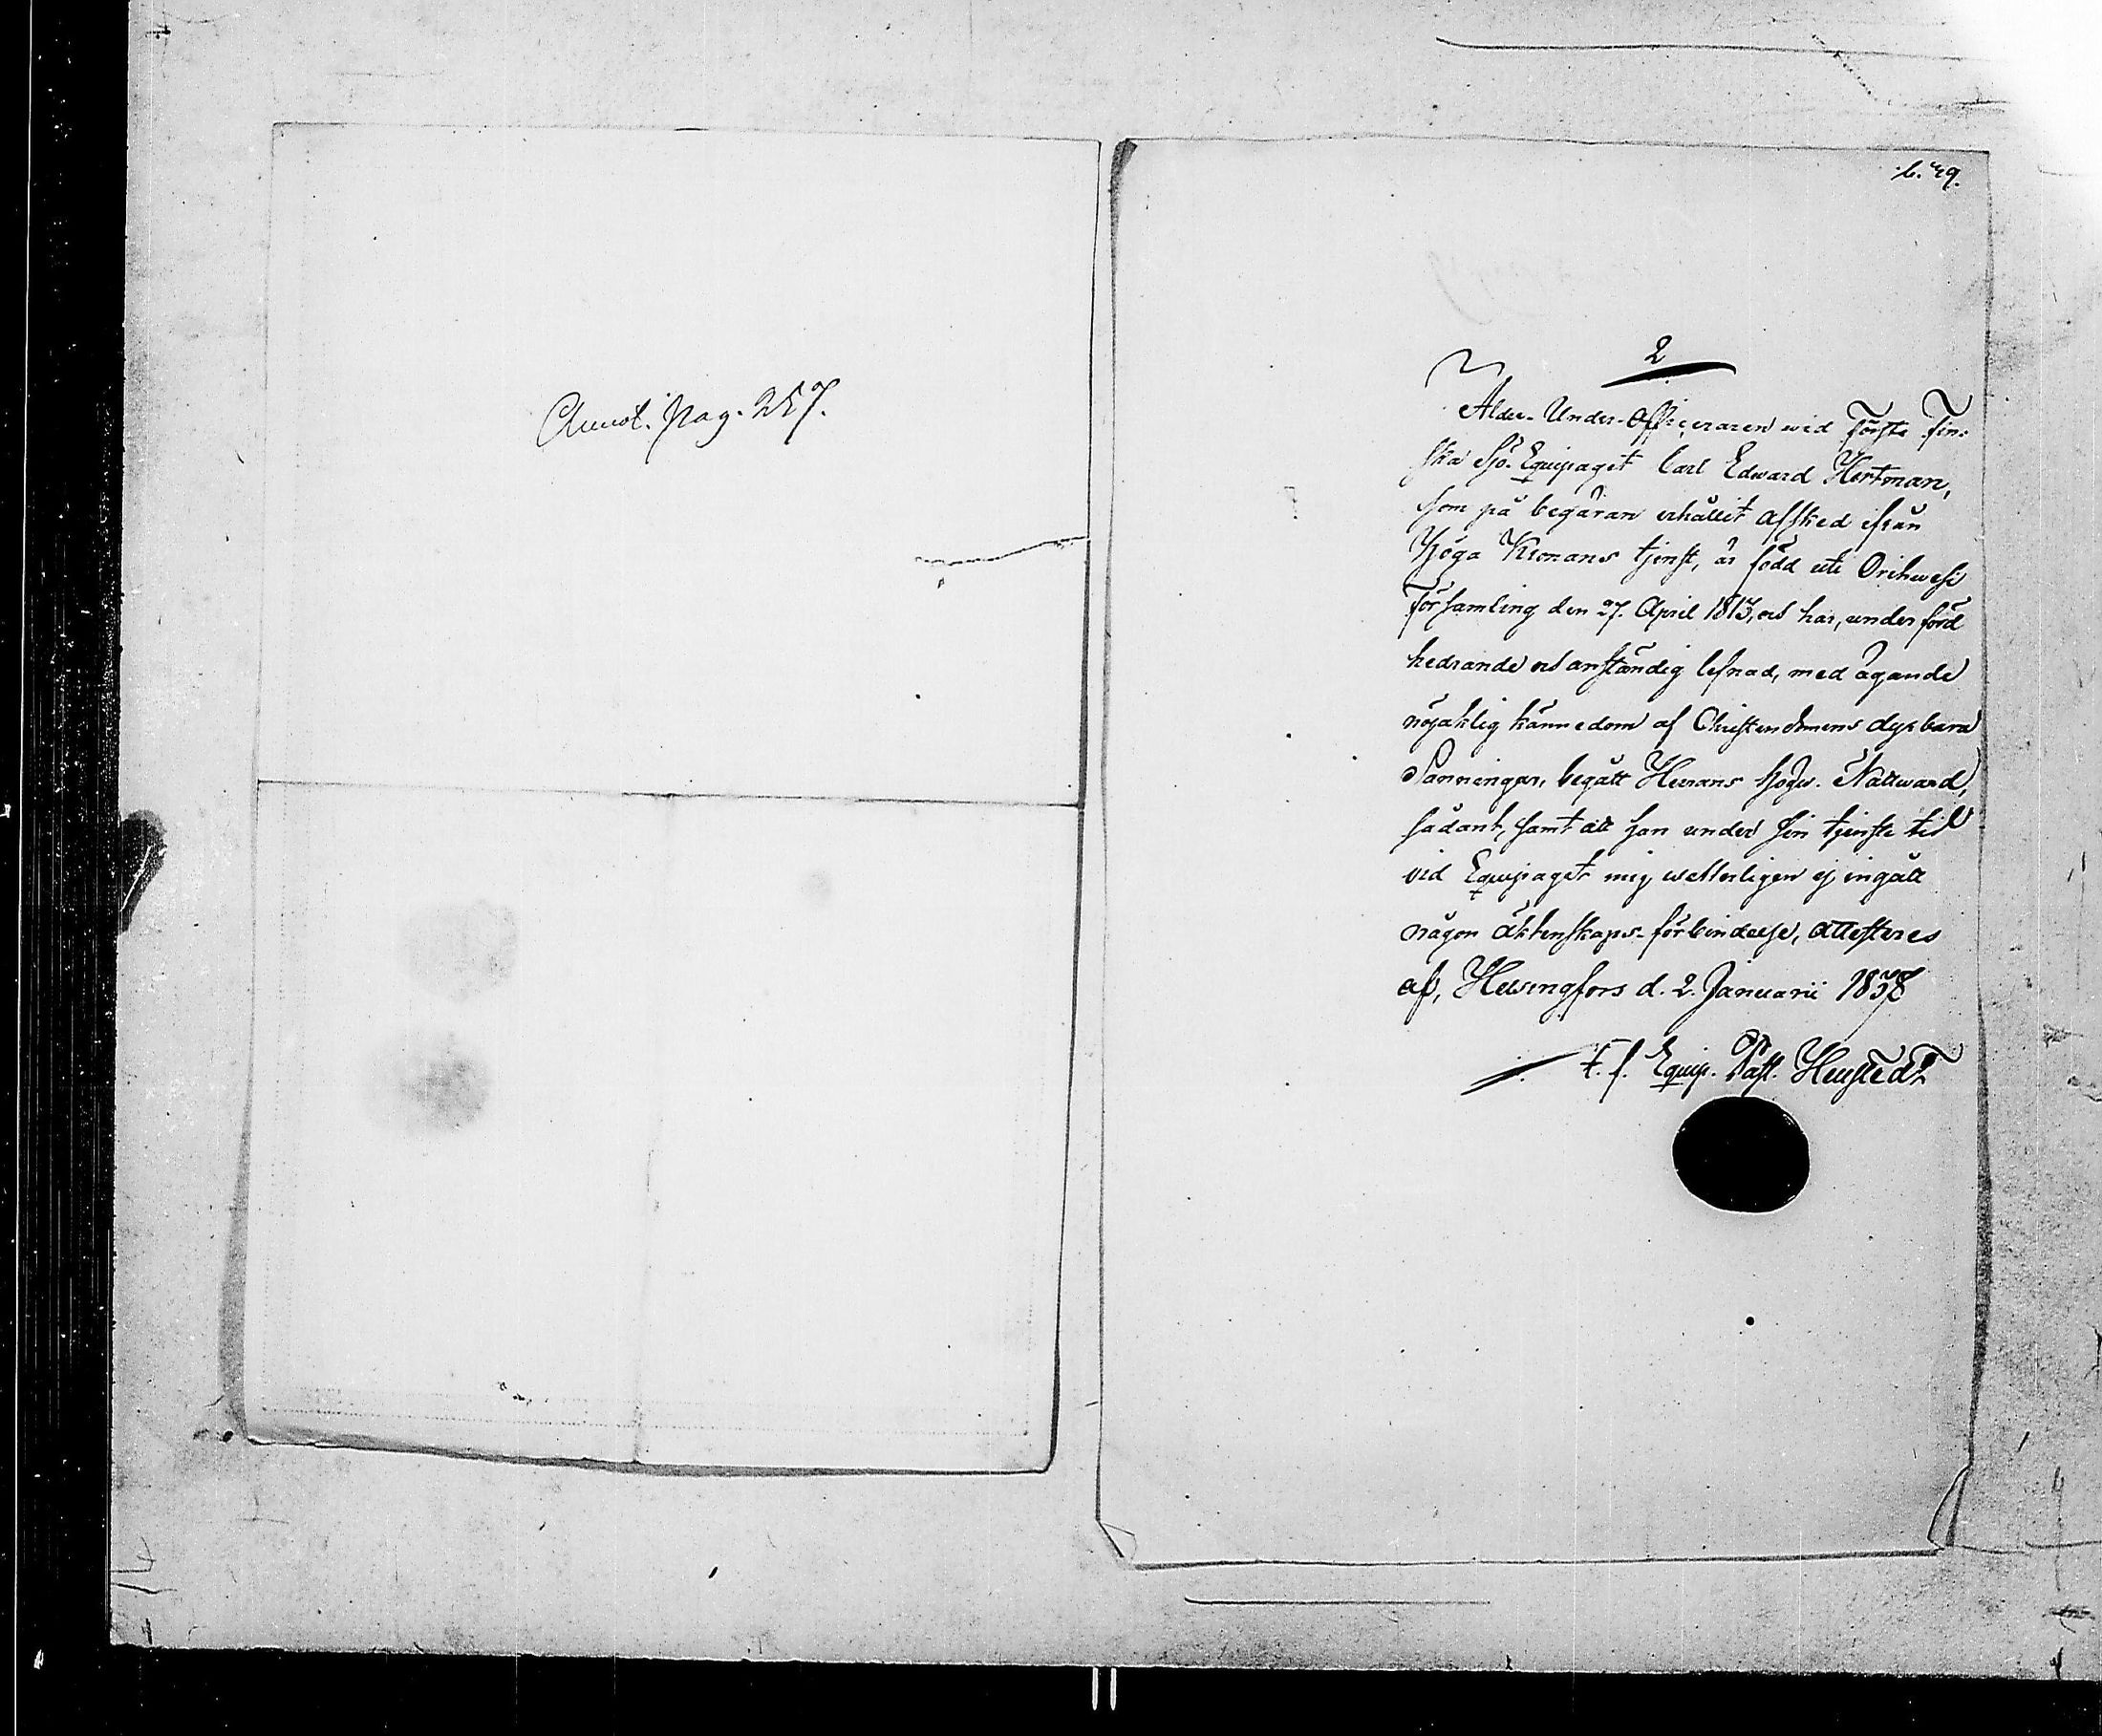 Annot. pag. 257.
b. 49.
2
Älder-Under-Officeraren wid Första Fin-
ska Sjö-Equipaget Carl Edward Hertman,
som på begäran erhållit afsked ifrån
Höga Kronans tjenst, är född uti Orihwesi
Församling den 27. April 1813, och har, under förd
hedrande och anständig lefnad, med ägande
nöjaktig kännedom af Christendomens dyrbara
Sanningar, begått Herrans Högw. Nattward,
sådant, samt att han under sin tjenste tid
vid Equipaget mig wetterligen ej ingått
någon äktenskaps-förbindelse, attesteres
af, Helsingfors d. 2. Januarii 1838
T. f. Equip. Past.